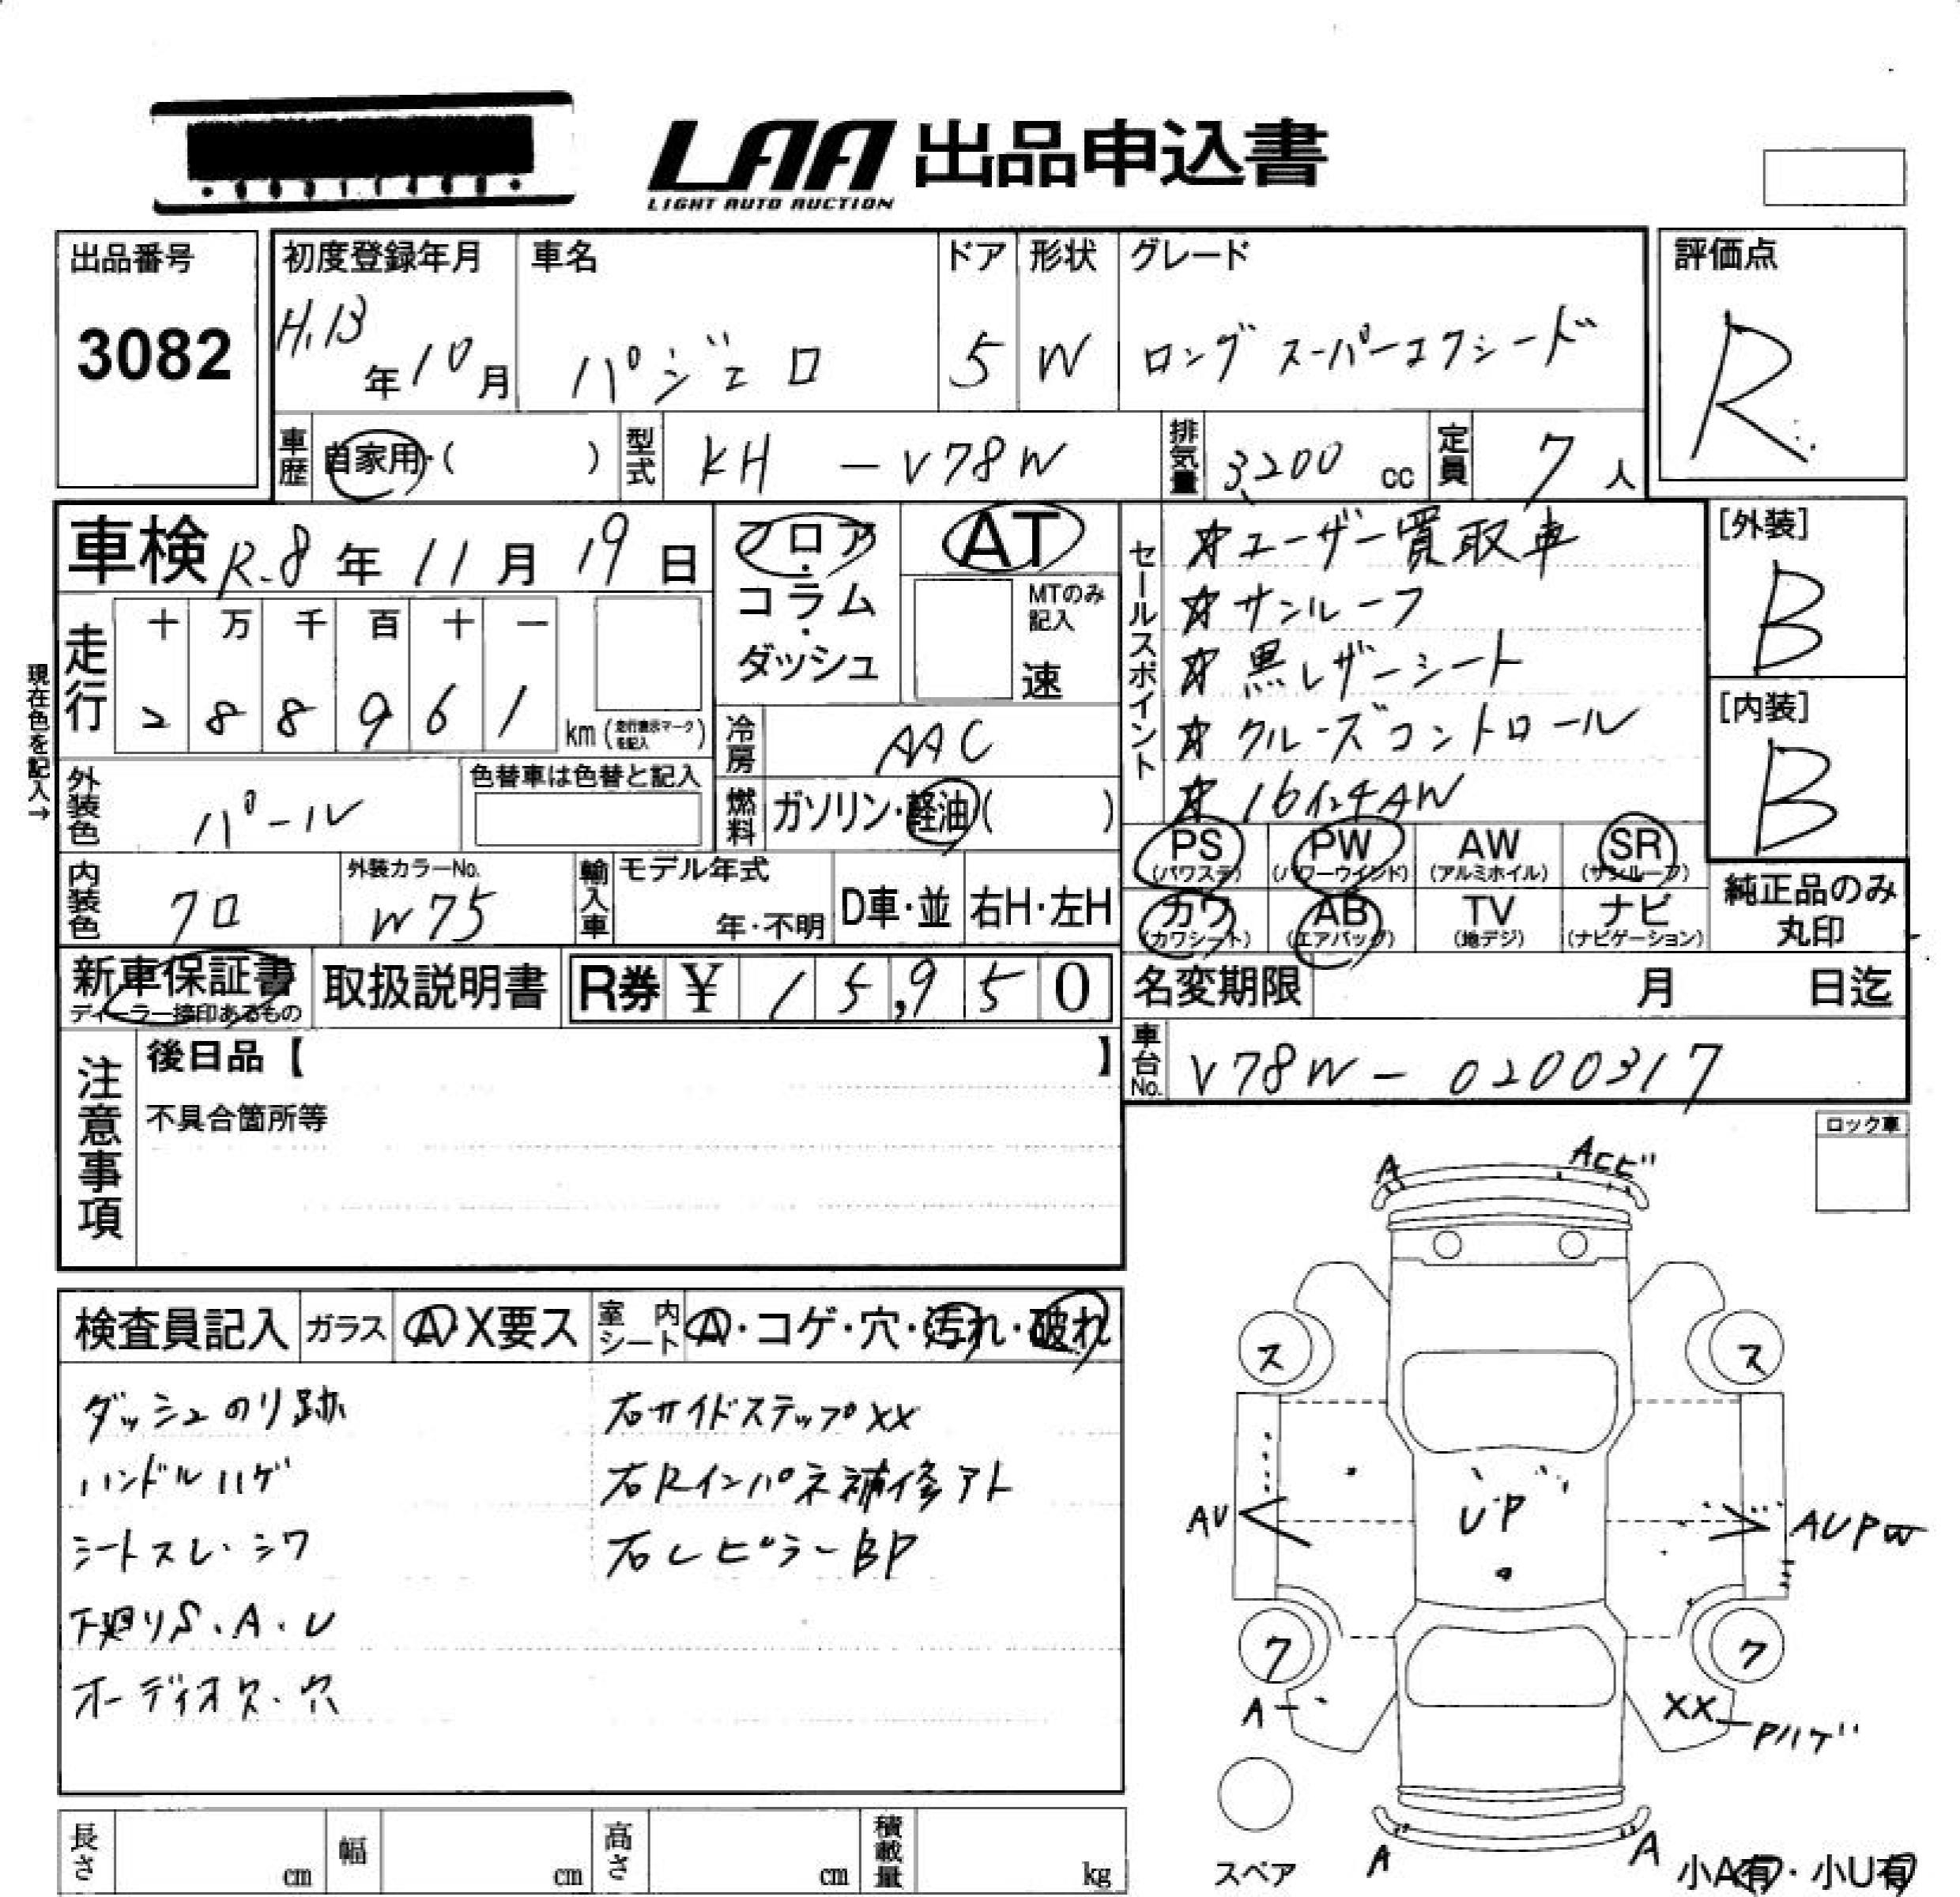 LAA 出品申込書
LIGHT AUTO AUCTION
出品番号
3082
初度登録年月
H.13年10月
車名
パジェロ
ドア
5
形状
W
グレード
ロング スーパーエクシード
評価点
R
車歴
自家用・( )
型式
KH - V78W
排気量
3,200 cc
定員
7人
車検 R.8年 11月 19日
フロア・コラム・ダッシュ
AT
MTのみ記入
速
現在色を記入→
走行
十 万 千 百 十 一
2 8 8 9 6 1
km (走行表示マークを記入)
冷房
AAC
外装色
パール
色替車は色替と記入
燃料
ガソリン・軽油( )
内装色
クロ
外装カラーNo.
W75
輸入車
モデル年式
年・不明
D車・並
右H・左H
セールスポイント
☆ユーザー買取車
☆サンルーフ
☆黒レザーシート
☆クルーズコントロール
☆16インチAW
[外装]
B
[内装]
B
PS (パワステ)
PW (パワーウインド)
AW (アルミホイル)
SR (サンルーフ)
カワ (カワシート)
AB (エアバッグ)
TV (地デジ)
ナビ (ナビゲーション)
純正品のみ
丸印
新車保証書
ディーラー捺印あるもの
取扱説明書
R券 ¥ 15,950
名変期限 月 日迄
車台No.
V78W - 0200317
注意事項
後日品【 】
不具合箇所等
ロック車
検査員記入
ガラス
A・X要ス
室内シート
A・コゲ・穴・汚れ・破れ
ダッシュのり跡
ハンドルハゲ
シートスレ・シワ
下廻りS.A.U
オーディオ欠・穴
右サイドステップXX
右Rインパネ補修アト
右Lピラー BP
A
Aヒビ
ス
ス
AU
UP
AUPW
ク
ク
A
XX
Pハゲ
スペア
A
A
小A有・小U有
長さ cm
幅 cm
高さ cm
積載量 kg